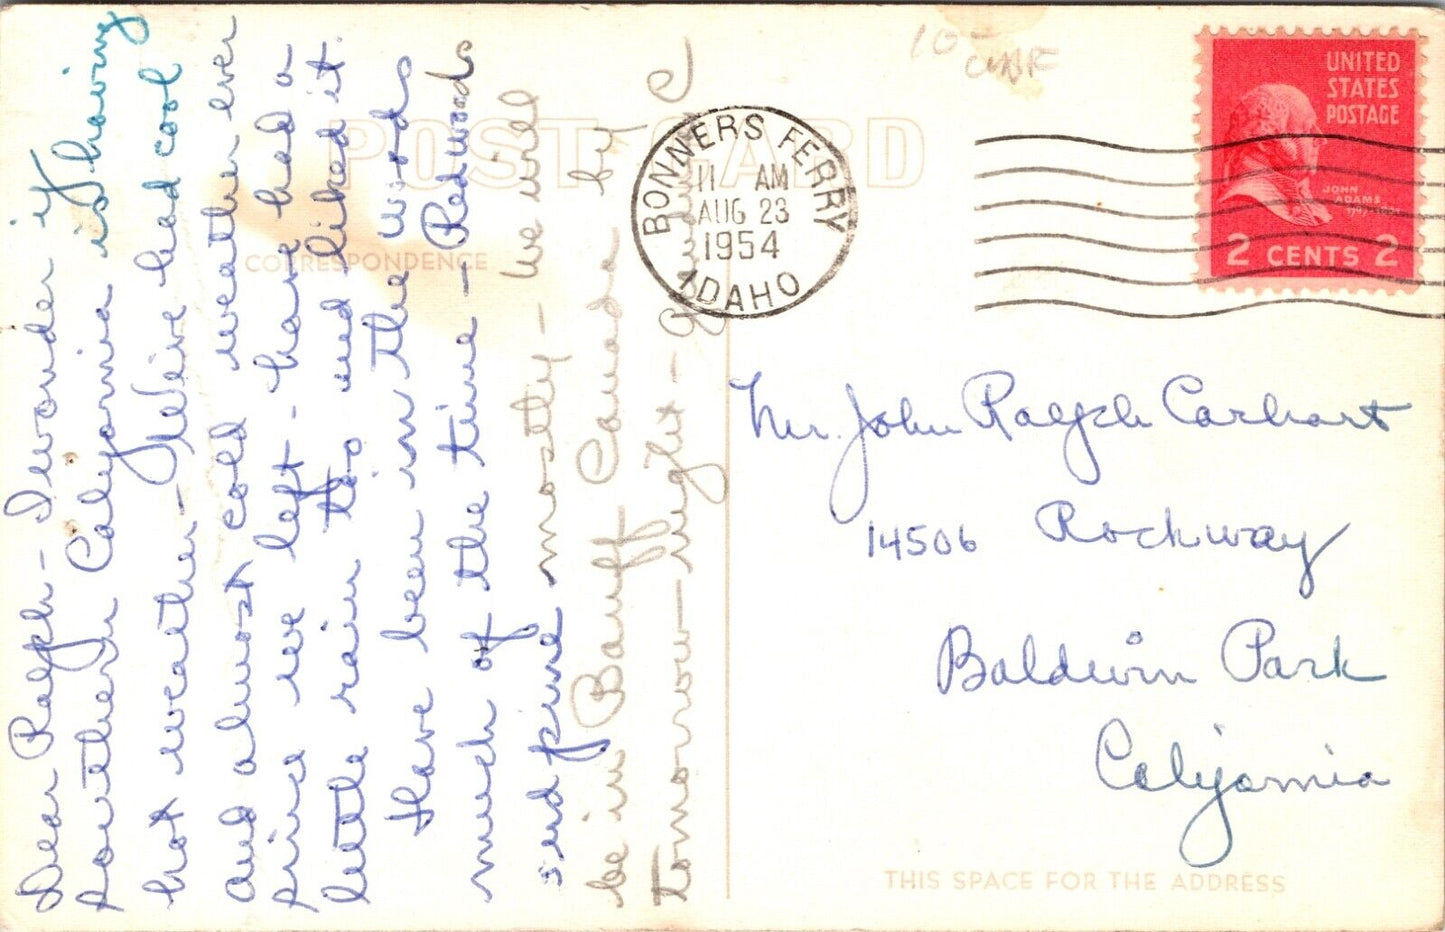 POST CARD
CORRESPONDENCE
Dear Ralph - I wonder if
southern California is having
hot weather - We've had cool
and almost cold weather ever
since we left - have had a
little rain too and liked it.
Have been in the woods
much of the time - Redwoods
and pine mostly - we will
be in Banff Canada by
tomorrow night -
BONNERS FERRY
11 AM
AUG 23
1954
IDAHO
10-
UNITED
STATES
POSTAGE
JOHN
ADAMS
2 CENTS 2
Mr. John Ralph Carhart
14506 Rockway
Baldwin Park
California
THIS SPACE FOR THE ADDRESS